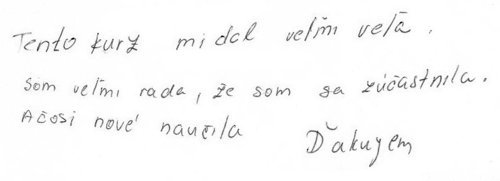 Tento kurz mi dal veľmi veľa.
Som veľmi rada, že som sa zúčastnila.
Ačosi nové naučila
Ďakujem